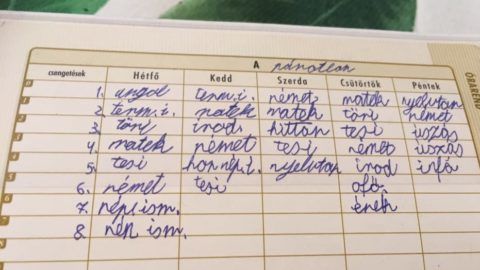 A páratlan
csengetések Hétfő Kedd Szerda Csütörtök Péntek
1. angol term.i. német matek nyelvtan
2. term.i. matek matek töri német
3. töri irod. hittan tesi úszás
4. matek német tesi német úszás
5. tesi hon nép.i. nyelvtan irod infó
6. német tesi ofő.
7. népi ism. ének
8. nép ism.
ÓRAREND